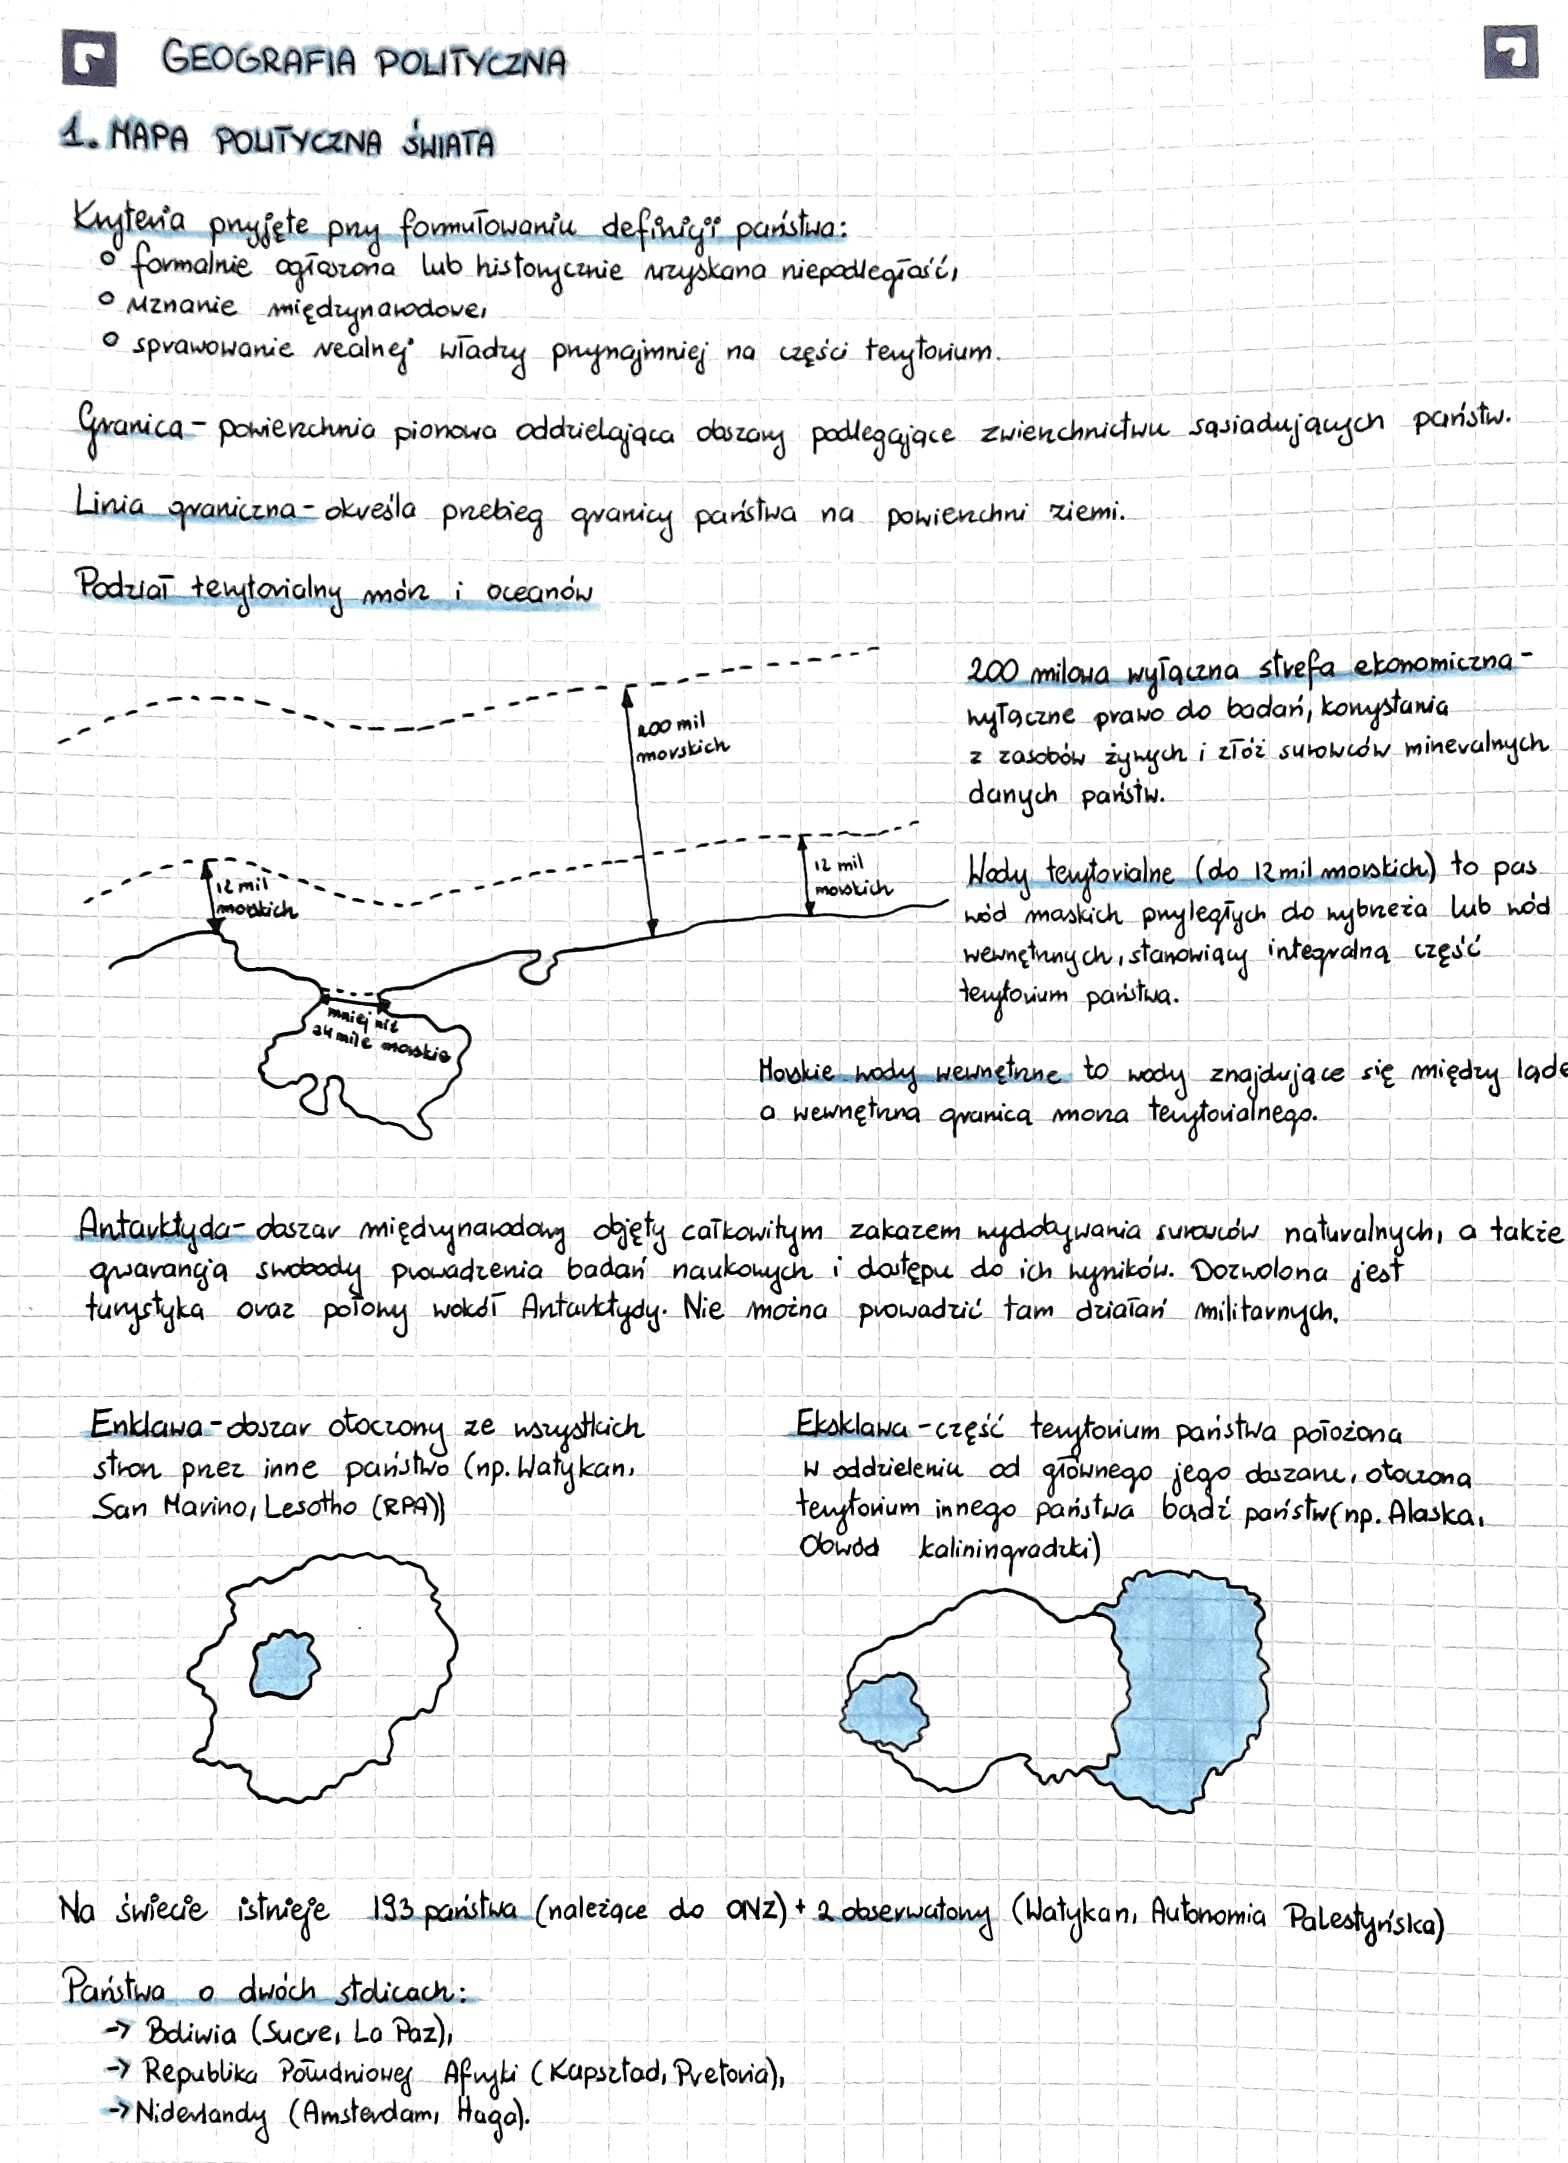 GEOGRAFIA POLITYCZNA
1. MAPA POLITYCZNA ŚWIATA
Kryteria przyjęte przy formułowaniu definicji państwa:
° formalnie ogłoszona lub historycznie uzyskana niepodległość,
° uznanie międzynarodowe,
° sprawowanie realnej władzy przynajmniej na części terytorium.
Granica - powierzchnia pionowa oddzielająca obszary podlegające zwierzchnictwu sąsiadujących państw.
Linia graniczna - określa przebieg granicy państwa na powierzchni ziemi.
Podział terytorialny mórz i oceanów
200 mil
morskich
12 mil
morskich
12 mil
morskich
mniej niż
24 mile morskie
200 milowa wyłączna strefa ekonomiczna -
wyłączne prawo do badań, korzystania
z zasobów żywych i złóż surowców mineralnych
danych państw.
Wody terytorialne (do 12 mil morskich) to pas
wód morskich przyległych do wybrzeża lub wód
wewnętrznych, stanowiący integralną część
terytorium państwa.
Morskie wody wewnętrzne to wody znajdujące się między ląde
a wewnętrzną granicą morza terytorialnego.
Antarktyda - obszar międzynarodowy objęty całkowitym zakazem wydobywania surowców naturalnych, a także
gwarancją swobody prowadzenia badań naukowych i dostępu do ich wyników. Dozwolona jest
turystyka oraz połowy wokół Antarktydy. Nie można prowadzić tam działań militarnych.
Enklawa - obszar otoczony ze wszystkich
stron przez inne państwo (np. Watykan,
San Marino, Lesotho (RPA))
Eksklawa - część terytorium państwa położona
w oddzieleniu od głównego jego obszaru, otoczona
terytorium innego państwa bądź państw (np. Alaska,
Obwód kaliningradzki)
Na świecie istnieje 193 państwa (należące do ONZ) + 2 obserwatorzy (Watykan, Autonomia Palestyńska)
Państwa o dwóch stolicach:
→ Boliwia (Sucre, La Paz),
→ Republika Południowej Afryki (Kapsztad, Pretoria),
→ Niderlandy (Amsterdam, Haga).